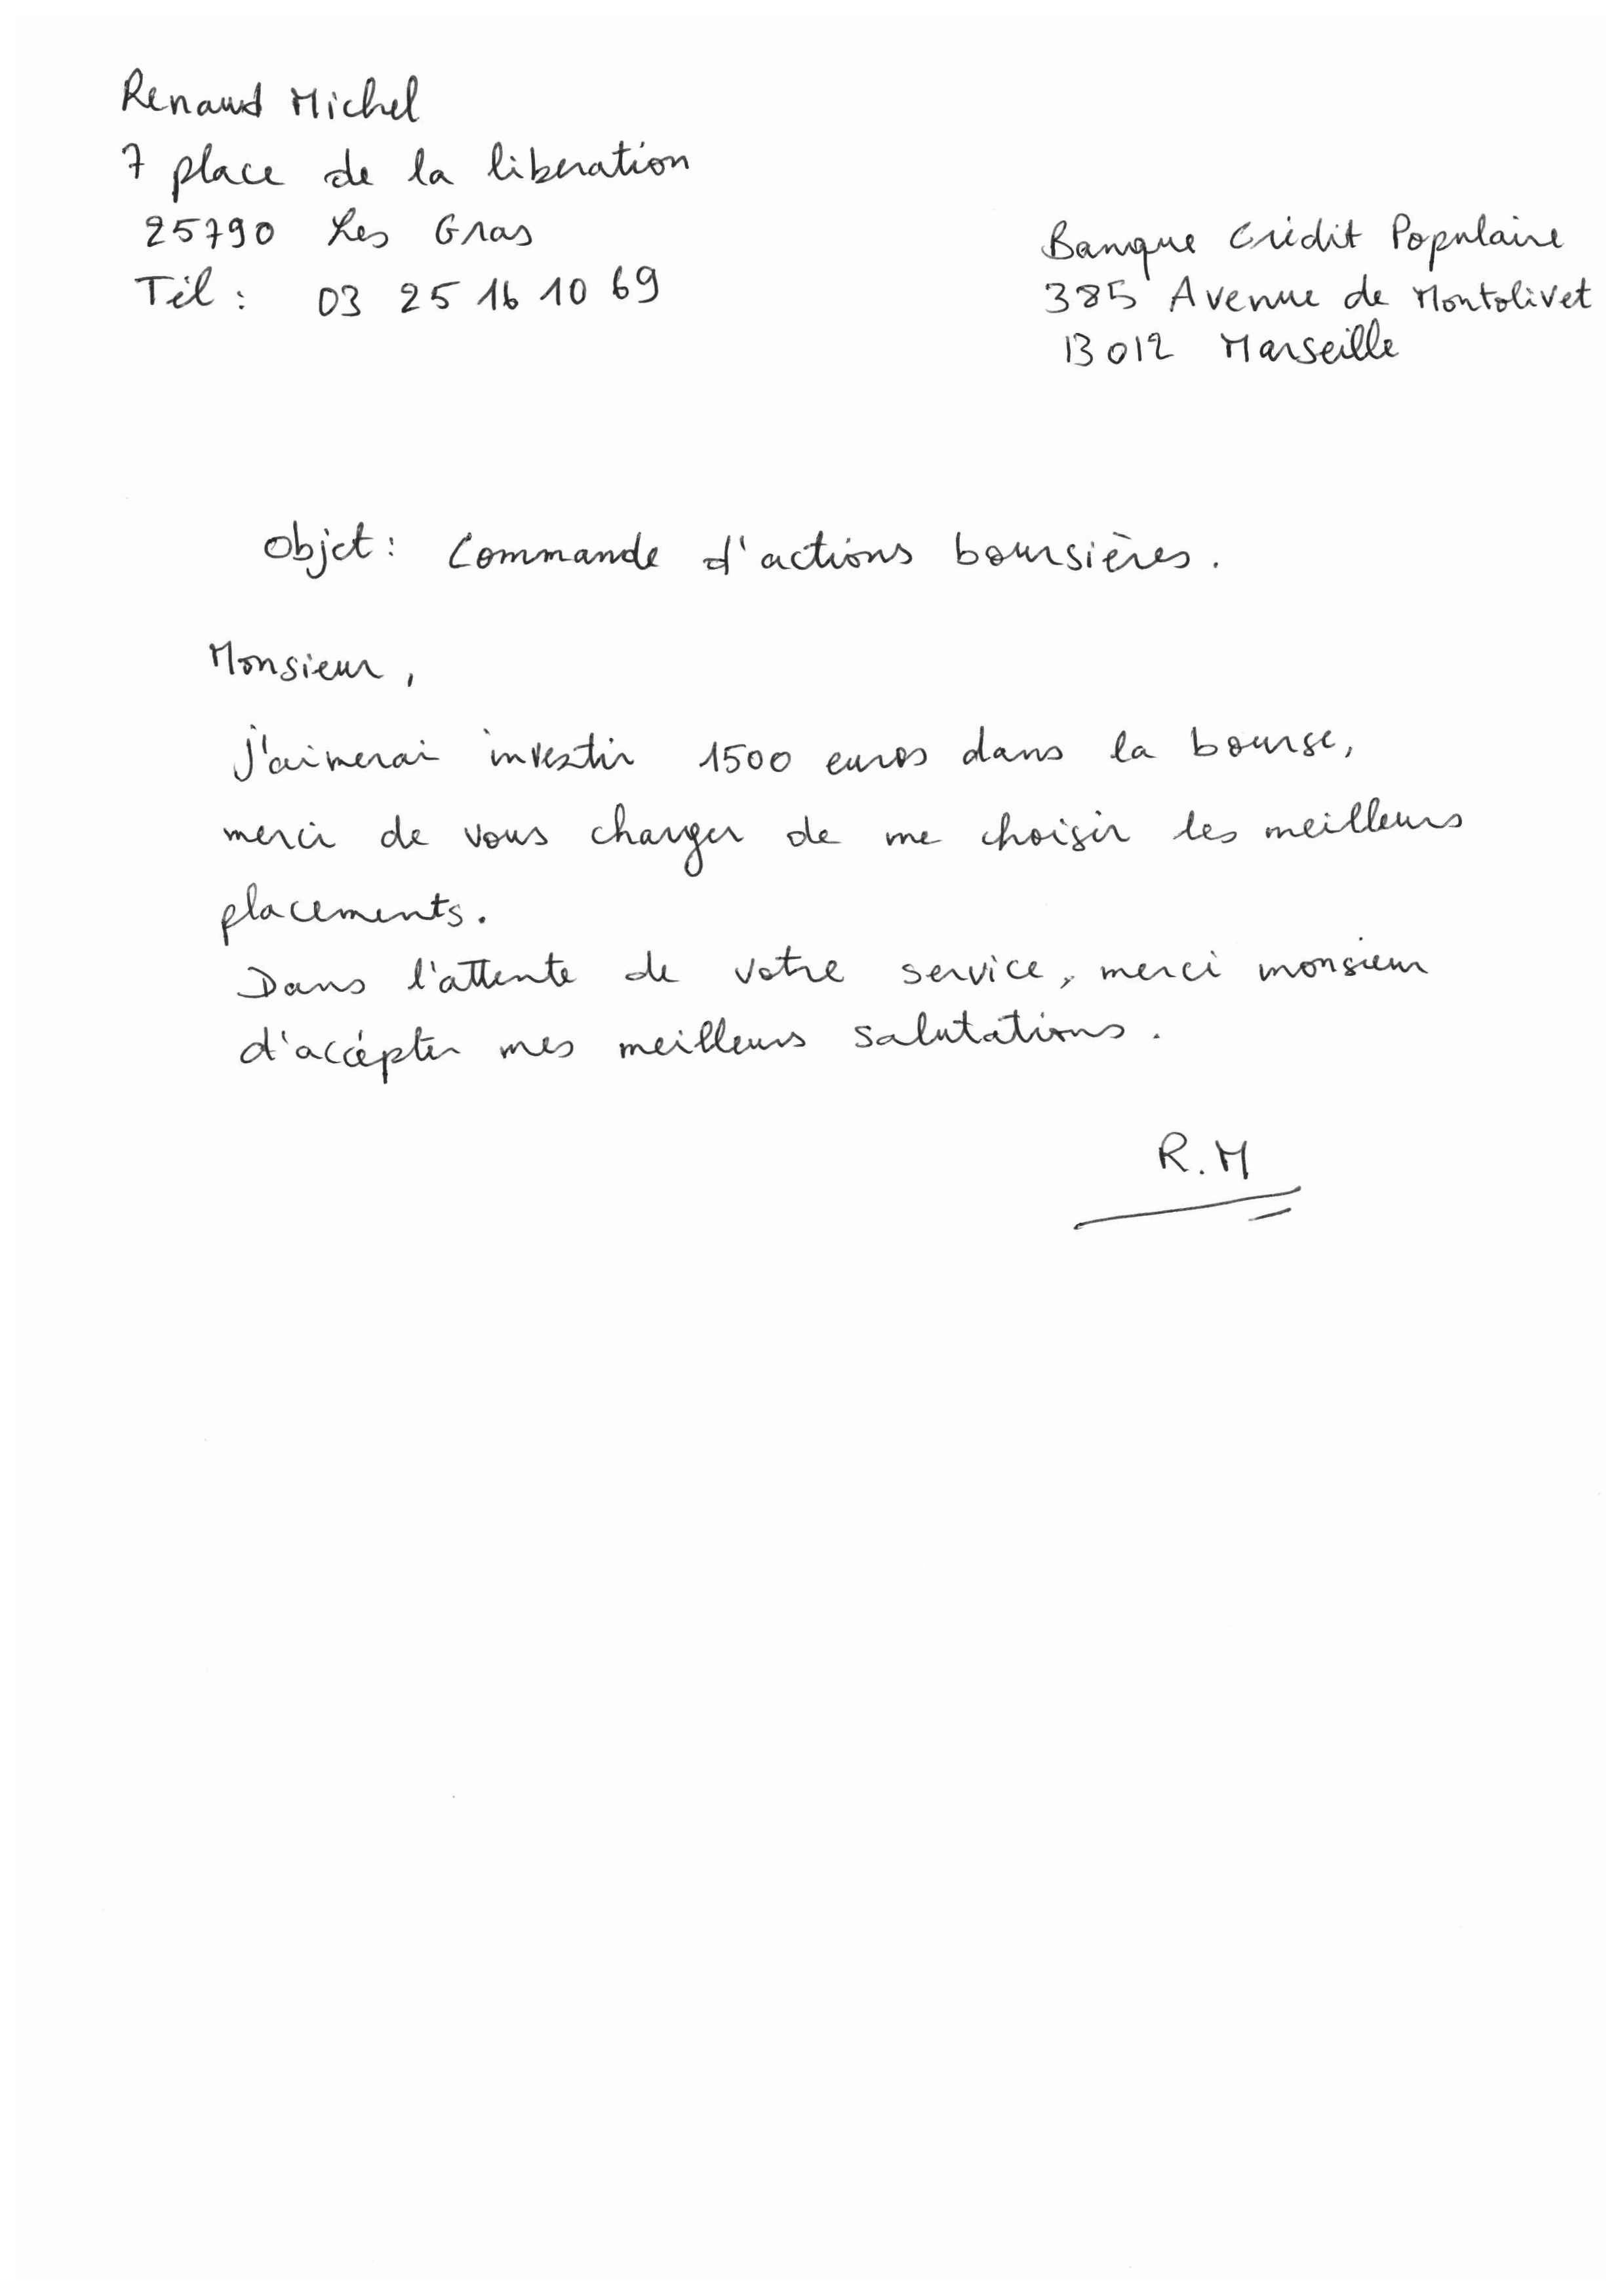 Renaud Michel
7 place de la liberation
25790 Les Gras
Tél : 03 25 16 10 69
Banque Crédit Populaire
385 Avenue de Montolivet
13012 Marseille
Objet : Commande d'actions boursières.
Monsieur,
J'aimerai investir 1500 euros dans la bourse,
merci de vous charger de me choisir les meilleurs
placements.
Dans l'attente de votre service, merci monsieur
d'accépter mes meilleurs salutations.
R.M